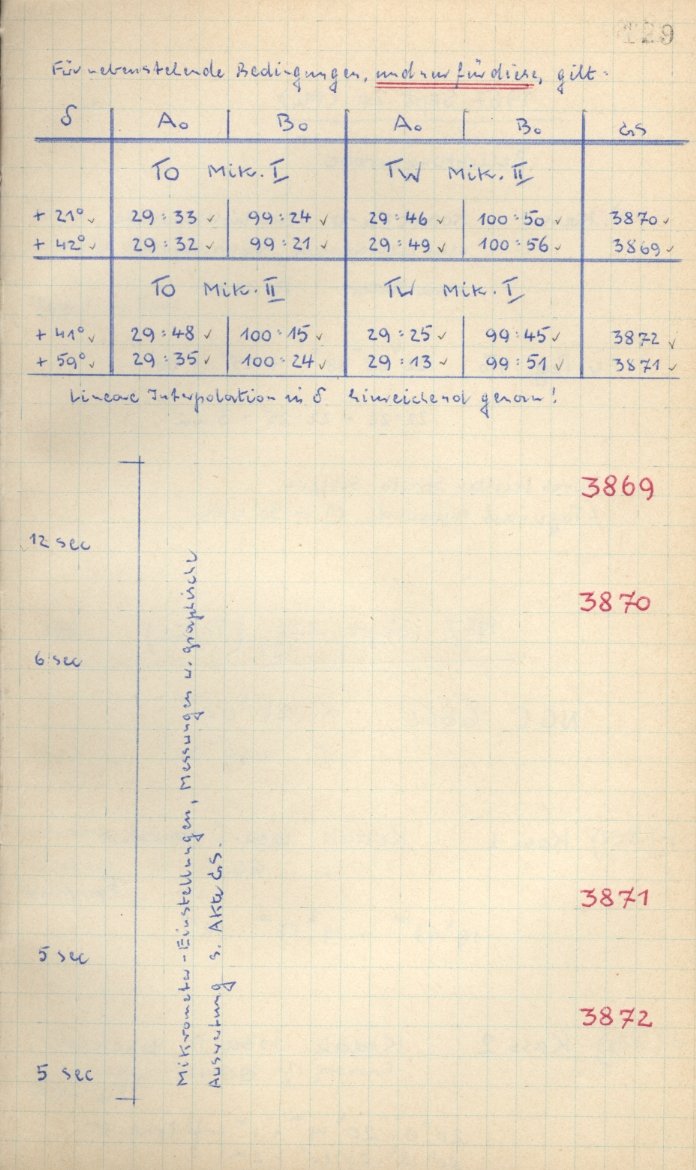 129
Für nebenstehende Bedingungen, und nur für diese, gilt:
δ A₀ B₀ A₀ B₀ GS
TO Mik. I TW Mik. II
+ 21° ✓ 29:33 ✓ 99:24 ✓ 29:46 ✓ 100:50 ✓ 3870 ✓
+ 42° ✓ 29:32 ✓ 99:21 ✓ 29:49 ✓ 100:56 ✓ 3869 ✓
TO Mik. II TW Mik. I
+ 41° ✓ 29:48 ✓ 100:15 ✓ 29:25 ✓ 99:45 ✓ 3872 ✓
+ 59° ✓ 29:35 ✓ 100:24 ✓ 29:13 ✓ 99:51 ✓ 3871 ✓
Lineare Interpolation in δ hinreichend genau!
3869
12 sec
3870
6 sec
Mikrometer-Einstellungen, Messungen u. graphische
Auswertung s. Akte GS.
3871
5 sec
3872
5 sec